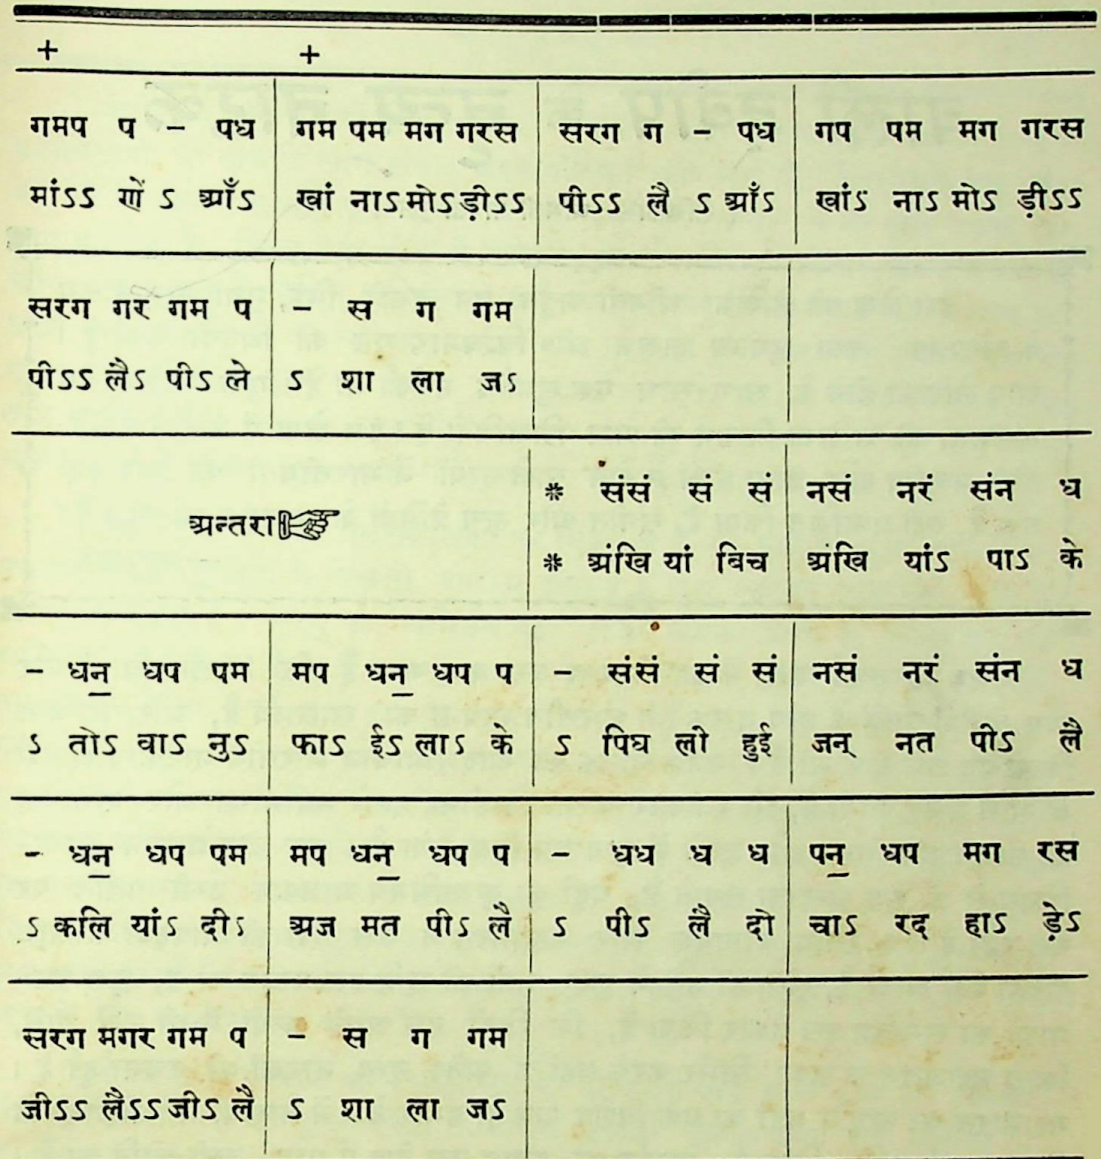 + +
गमप प – पध गम पम मग गरस सरग ग – पध गप पम मग गरस
मांऽऽ णें ऽ आँऽ खां नाऽ मोऽ ड़ीऽऽ पीऽऽ लै ऽ आँऽ खांऽ नाऽ मोऽ ड़ीऽऽ
सरग गर गम प – स ग गम
पीऽऽ लैऽ पीऽ ले ऽ शा ला जऽ
अन्तरा
* संसं सं सं नसं नरं संन ध
* अंखि यां विच अंखि यांऽ पाऽ के
– धन॒ धप पम मप धन॒ धप प – संसं सं सं नसं नरं संन ध
ऽ तोऽ वाऽ नुऽ फाऽ ईऽ लाऽ के ऽ पिघ ली हुई जन् नत पीऽ लै
– धन॒ धप पम मप धन॒ धप प – धध ध ध पन॒ धप मग रस
ऽ कलि यांऽ दीऽ अज मत पीऽ लै ऽ पीऽ लै दो चाऽ रद् हाऽ ड़ेऽ
सरग मगर गम प – स ग गम
जीऽऽ लैऽऽ जीऽ लै ऽ शा ला जऽ